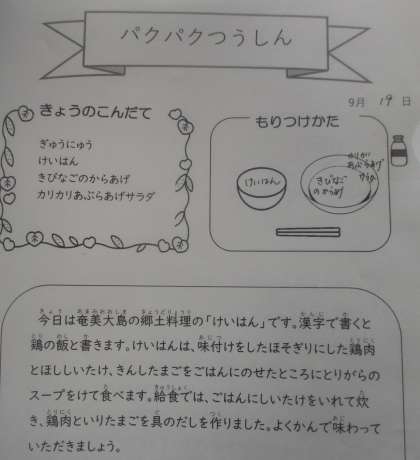 パクパクつうしん
9月 19 日
きょうのこんだて
ぎゅうにゅう
けいはん
きびなごのからあげ
カリカリあぶらあげサラダ
もりつけかた
けいはん
きびなご
のからあげ
カリカリ
あぶらあげ
サラダ
今日は奄美大島の郷土料理の「けいはん」です。漢字で書くと
鶏の飯と書きます。けいはんは、味付けをしたほそぎりにした鶏肉
とほししいたけ、きんしたまごをごはんにのせたところにとりがらの
スープをかけて食べます。給食では、ごはんにしいたけをいれて炊
き、鶏肉といりたまごを具のだしを作りました。よくかんで味わって
いただきましょう。